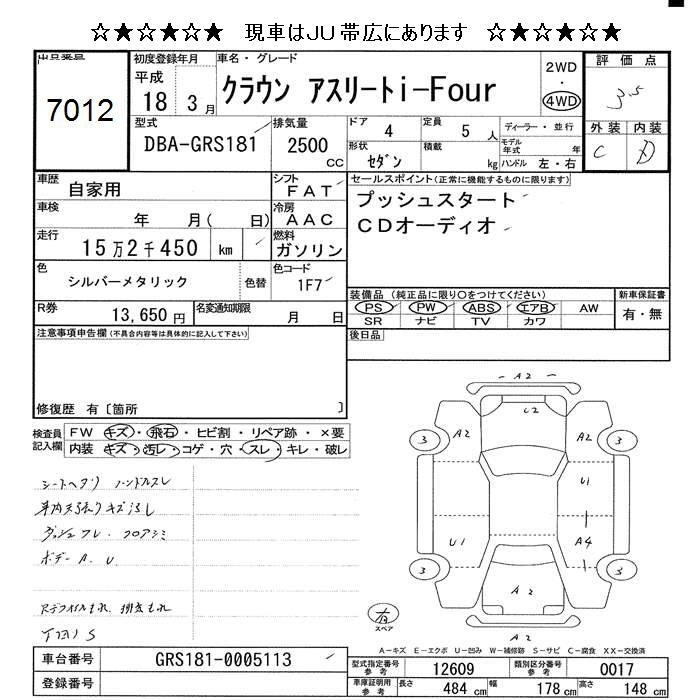 ☆★☆★☆★ 現車はＪＵ帯広にあります ☆★☆★☆★
出品番号
7012
初度登録年月
平成
18 3 月
車名・グレード
クラウン アスリートi-Four
2WD
・
4WD
評価点
3.5
外装 内装
C D
型式
DBA-GRS181
排気量
2500
CC
ドア
4
定員
5 人
ディーラー・並行
形状
セダン
積載
kg
モデル年式
年
ハンドル 左・右
車歴
自家用
シフト
FAT
車検
年 月( 日)
冷房
AAC
走行
15万2千450 km
燃料
ガソリン
色
シルバーメタリック
色替
色コード
1F7
R券
13,650円
名変通知期限
月 日
セールスポイント(正常に機能するものに限ります)
プッシュスタート
CDオーディオ
装備品 (純正品に限り○をつけてください)
PS PW ABS エアB AW
SR ナビ TV カワ
新車保証書
有・無
後日品
注意事項申告欄(不具合内容等は具体的に記入して下さい)
修復歴 有〔箇所 〕
検査員記入欄
FW キズ・飛石・ヒビ割・リペア跡・×要
内装 キズ・汚レ・コゲ・穴・スレ・キレ・破レ
シートヘタリ ハンドルスレ
ボデー A. U
A2
C2
3
A2
A2
3
U1
U1
A4
3
3
A2
A2
有
スペア
A－キズ E－エクボ U－凹み W－補修跡 S－サビ C－腐食 XX－交換済
車台番号
GRS181-0005113
登録番号
型式指定番号
参考
12609
類別区分番号
参考
0017
車庫証明用
参考
長さ
484 cm
幅
178 cm
高さ
148 cm